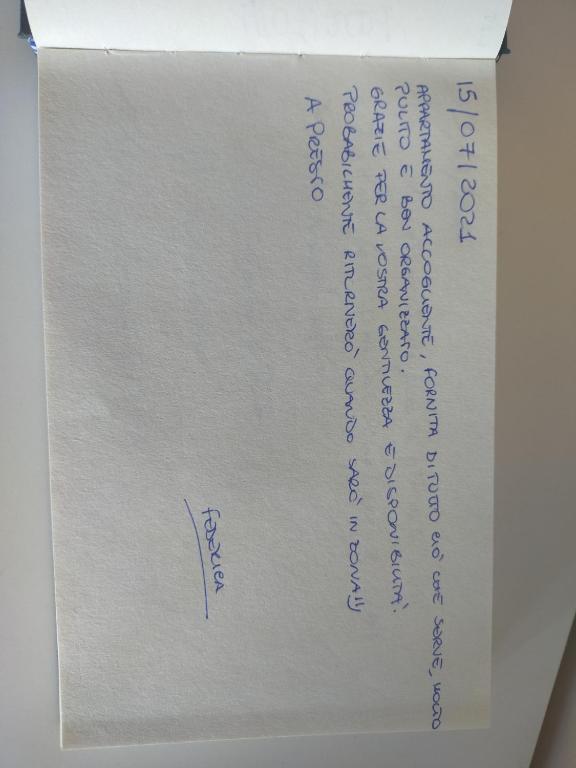 15/07/2021
APPARTAMENTO ACCOGLIENTE, FORNITA DI TUTTO CIÒ CHE SERVE, MOLTO
PULITO E BEN ORGANIZZATO.
GRAZIE PER LA VOSTRA GENTILEZZA E DISPONIBILITÀ.
PROBABILMENTE RITORNERÒ QUANDO SARÒ IN ZONA!!)
A PRESTO
FEDERICA